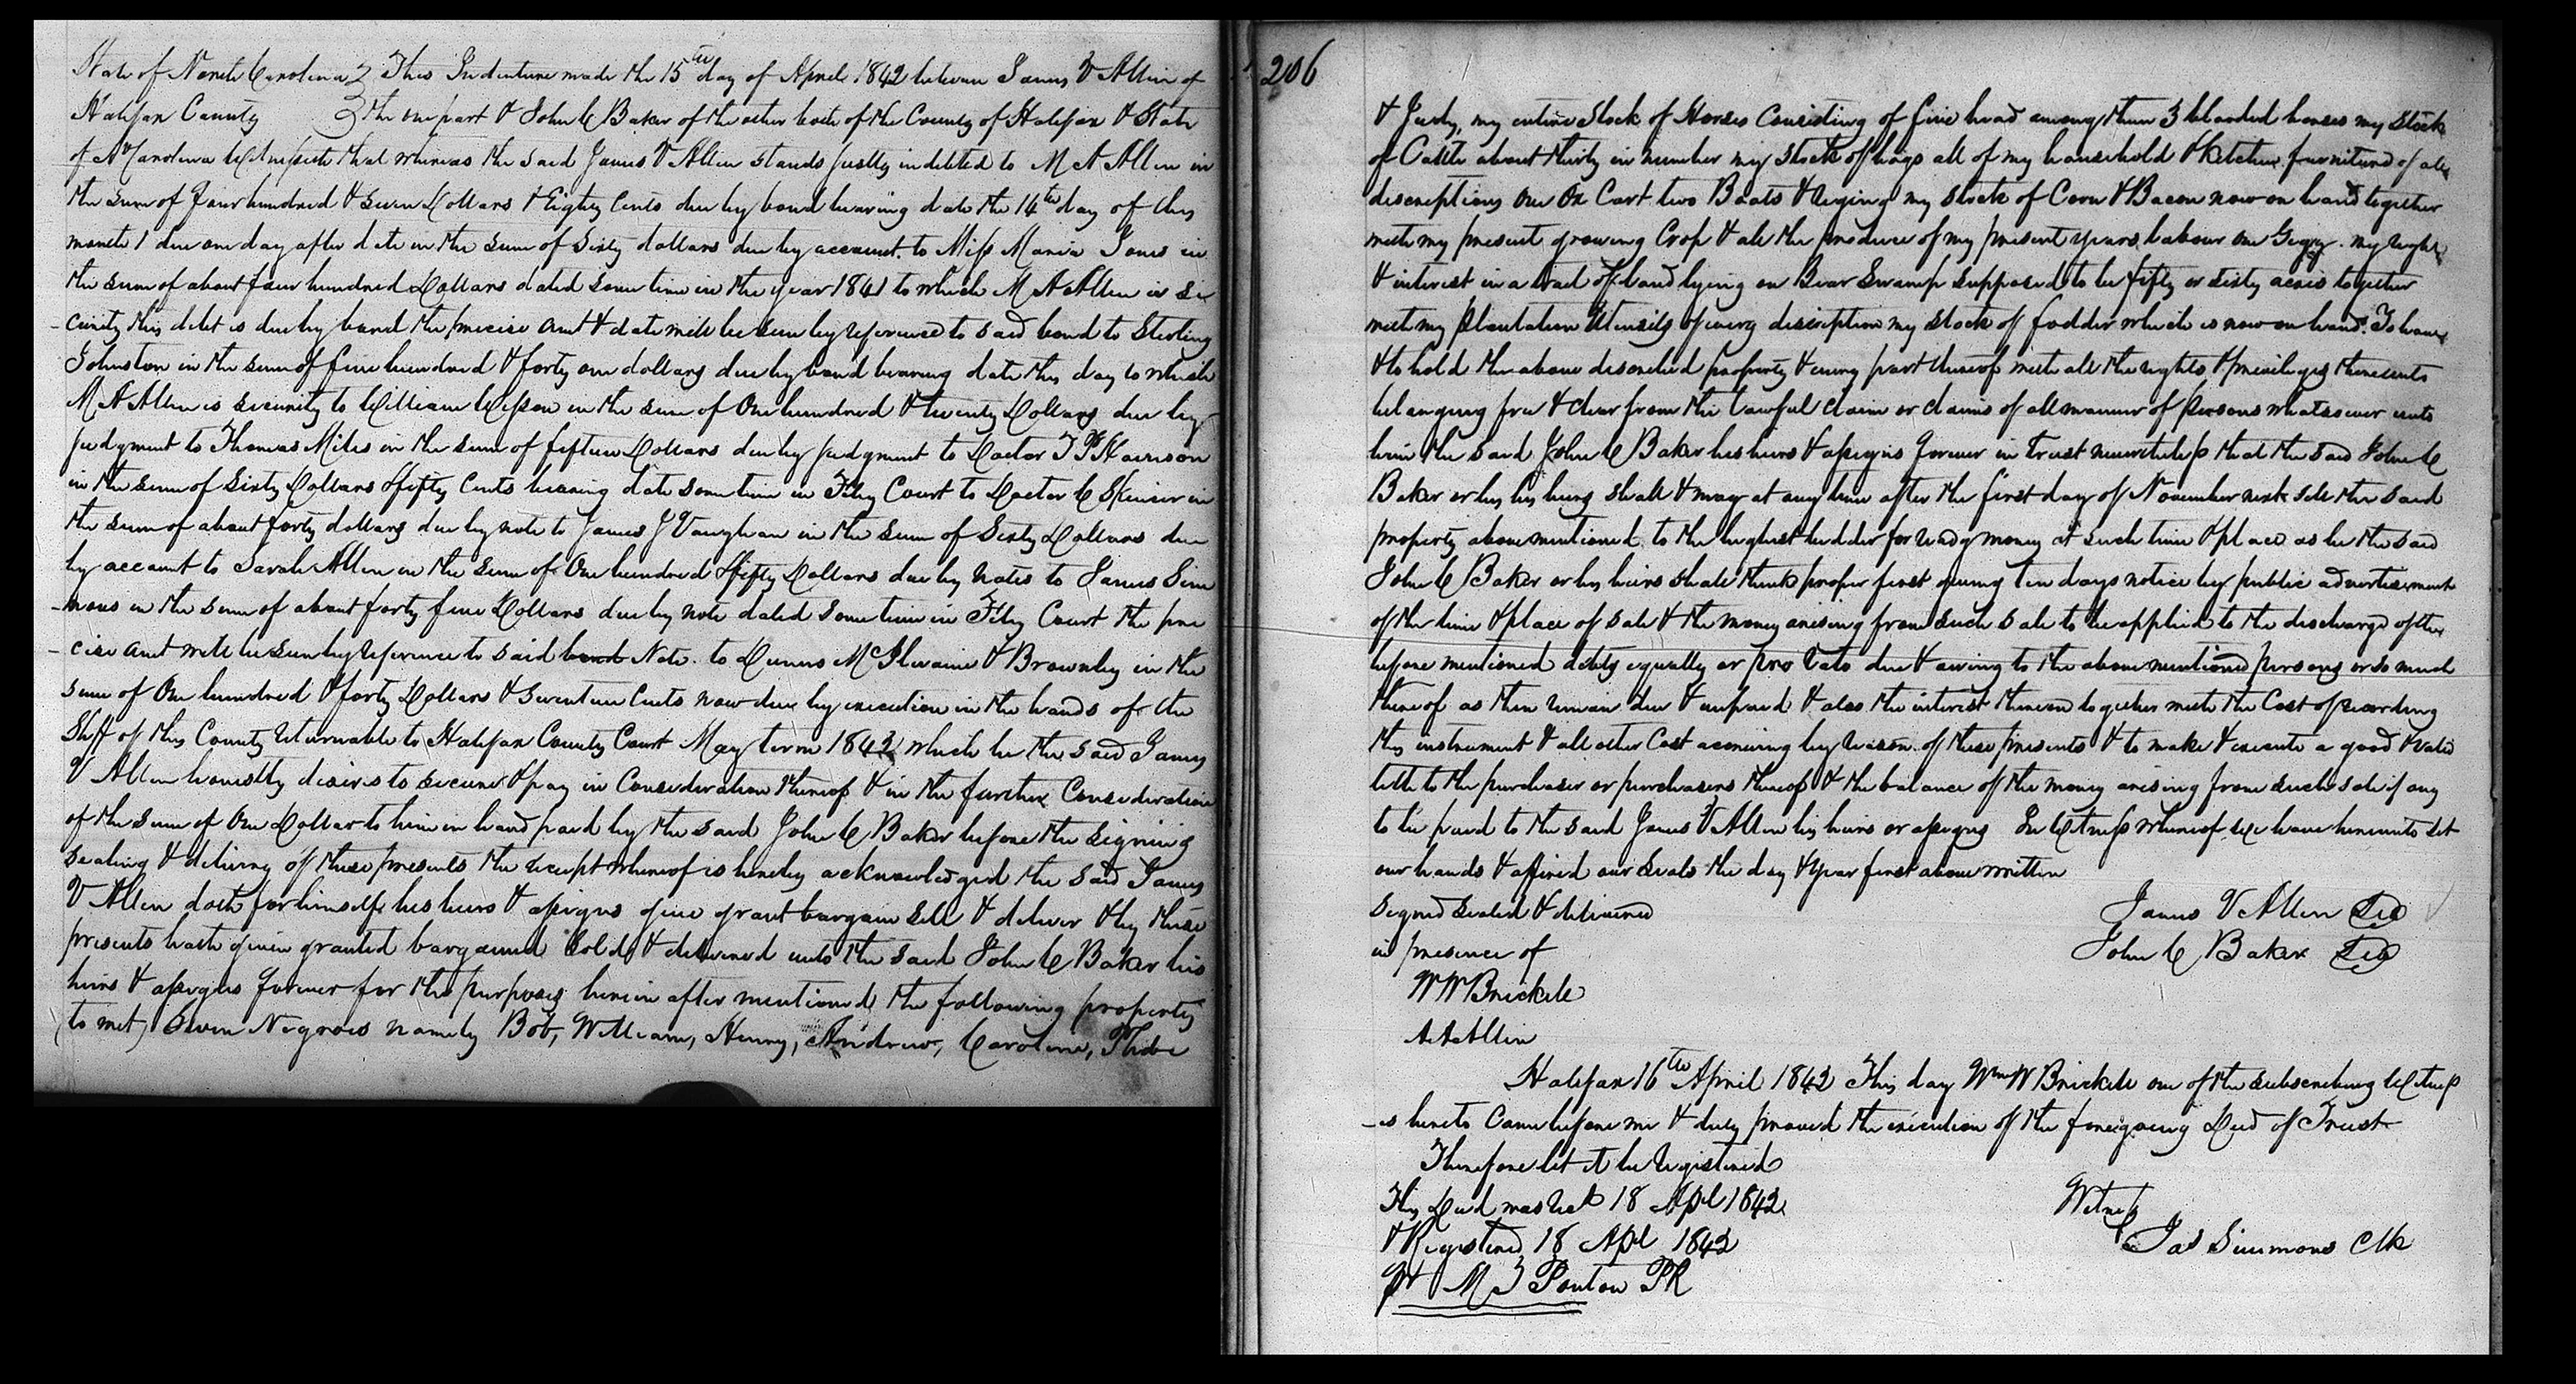 State of North Carolina } This Indenture made the 15th day of April 1842 between James V Allen of
Halifax County } the one part & John C Baker of the other both of the County of Halifax & State
of N Carolina Witnesseth that whereas the said James V Allen stands justly indebted to M A Allen in
the sum of four hundred & seven Dollars & Eighty Cents due by bond bearing date the 14th day of this
month & due one day after date in the sum of Sixty dollars due by account. to Miss Maria Jones in
the sum of about four hundred Dollars dated some time in the year 1841 to which M A Allen is se
-curity this debt is due by bond the precise amt & date will be seen by reference to said bond to Sterling
Johnston in the sum of five hundred & forty one dollars due by bond bearing date this day to which
M A Allen is security to William Wesson in the sum of One hundred & twenty Dollars due by
judgment to Thomas Miles in the sum of fifteen Dollars due by judgment to Doctor T P Harrison
in the sum of Sixty Dollars & fifty Cents bearing date sometime in Feby Court to Doctor C Spicer in
the sum of about forty dollars due by note to James J Vaughan in the sum of Sixty Dollars due
by account to Sarah Allen in the sum of One hundred & fifty Dollars due by notes to James Sim
-mons in the sum of about forty five Dollars due by note dated sometime in Feby Court the pre
-cise amt will be seen by reference to said bond Note. to Dunns McIlwaine & Brownley in the
sum of One hundred & forty Dollars & Seventeen Cents now due by execution in the hands of the
Shff of this County returnable to Halifax County Court May term 1842 which he the said James
V Allen honestly desires to secure & pay in Consideration thereof & in the further Consideration
of the sum of One Dollar to him in hand paid by the said John C Baker before the signing
sealing & delivery of these presents the receipt whereof is hereby acknowledged the said James
V Allen doth for himself his heirs & assigns give grant bargain sell & deliver & by these
presents hath given granted bargained Sold & delivered unto the said John C Baker his
heirs & assigns forever for the purposes herein after mentioned the following property
(to wit) Seven Negroes namely Bob, William, Henry, Andrew, Caroline, Phebe
206
& Judy, my entire stock of Horses Consisting of five head among them 3 blooded horses my stock
of Cattle about thirty in number my stock of hogs all of my household & kitchen furniture of all
descriptions one Ox Cart two Boats & rigging my stock of Corn & Bacon now on hand together
with my present growing Crop & all the produce of my present years labour one Gigg. my right
& interest in a tract of land lying on Bear Swamp supposed to be fifty or sixty acres together
with my plantation Utensils of every discription my stock of fodder which is now on hand. To have
& to hold the above described property & every part thereof with all the rights & privileges thereunto
belonging free & clear from the lawful claim or claims of all manner of persons whatsoever unto
him the said John C Baker his heirs & assigns forever in trust nevertheless that the said John C
Baker or his his heirs shall & may at any time after the first day of November next sell the said
property above mentioned to the highest bidder for ready money at such time & place as he the said
John C Baker or his heirs shall think proper first giving ten days notice by public advertisement
of the time & place of sale & the money arising from such sale to be applied to the discharge of the
before mentioned debts equally or pro rato due & owing to the above mentioned persons or so much
thereof as then remain due & unpaid & also the interest thereon together with the Cost of recording
this instrument & all other Cost accruing by reason of these presents & to make & execute a good & valid
title to the purchaser or purchasers thereof & the balance of the money arising from such sale if any
to be paid to the said James V Allen his heirs or assigns In Witness whereof we have hereunto set
our hands & affixed our seals the day & year first above written
Signed sealed & delivered
James V Allen Seal
in presence of
John C Baker Seal
W W Brickell
A A Allen
Halifax 16th April 1842 This day Wm W Brickell one of the subscribing Witness
-es hereto Came before me & duly proved the execution of the foregoing Deed of Trust
Therefore let it be registered
This Deed was Recd 18 Apl 1842
Witness
& Registered 18 Apl 1842
Jas Simmons Clk
pr M T Ponton PR